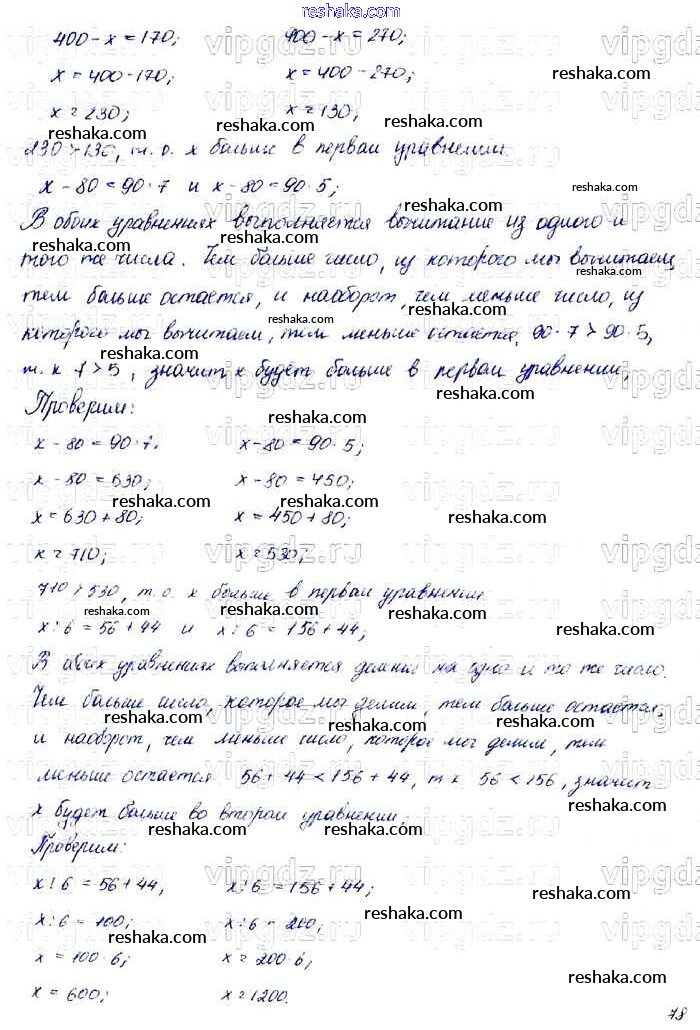 reshaka.com
400 - x = 170; 400 - x = 270;
x = 400 - 170; x = 400 - 270;
x = 230; x = 130;
230 > 130, т.о. x больше в первом уравнении.
x - 80 = 90 · 7 и x - 80 = 90 · 5;
В обоих уравнениях выполняется вычитание из одного и
того же числа. Чем больше число, из которого мы вычитаем,
тем больше остается, и наоборот, чем меньше число, из
которого мы вычитаем, тем меньше остается, 90 · 7 > 90 · 5,
т.к 7 > 5, значит, x будет больше в первом уравнении,
Проверим:
x - 80 = 90 · 7. x - 80 = 90 · 5;
x - 80 = 630; x - 80 = 450;
x = 630 + 80; x = 450 + 80;
x = 710; x = 530;
710 > 530, т.о. x больше в первом уравнении
x : 6 = 56 + 44 и x : 6 = 156 + 44;
В обоих уравнениях выполняется деление на одно и то же число.
Чем больше число, которое мы делим, тем больше остается,
и наоборот, чем меньше число, которое мы делим, тем
меньше остается 56 + 44 < 156 + 44, т к 56 < 156, значит
x будет больше во втором уравнении.
Проверим:
x : 6 = 56 + 44, x : 6 = 156 + 44;
x : 6 = 100; x : 6 = 200;
x = 100 · 6; x = 200 · 6;
x = 600; x = 1200.
78